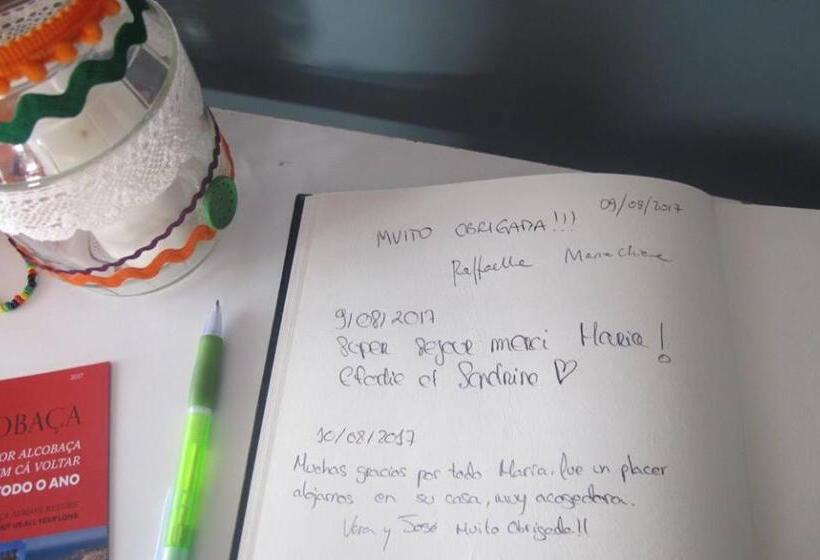 09/08/2017
MUITO OBRIGADA!!!
Raffaella
9/08/2017
Super sejour merci Maria!
et Sandrine ♡
10/08/2017
Muchas gracias por todo Maria. fue un placer
alojarnos en su casa, muy acogedora.
Vera y José Muito Obrigado!!
2017
OBAÇA
OR ALCOBAÇA
M CÁ VOLTAR
TODO O ANO
ALL YEAR LONG